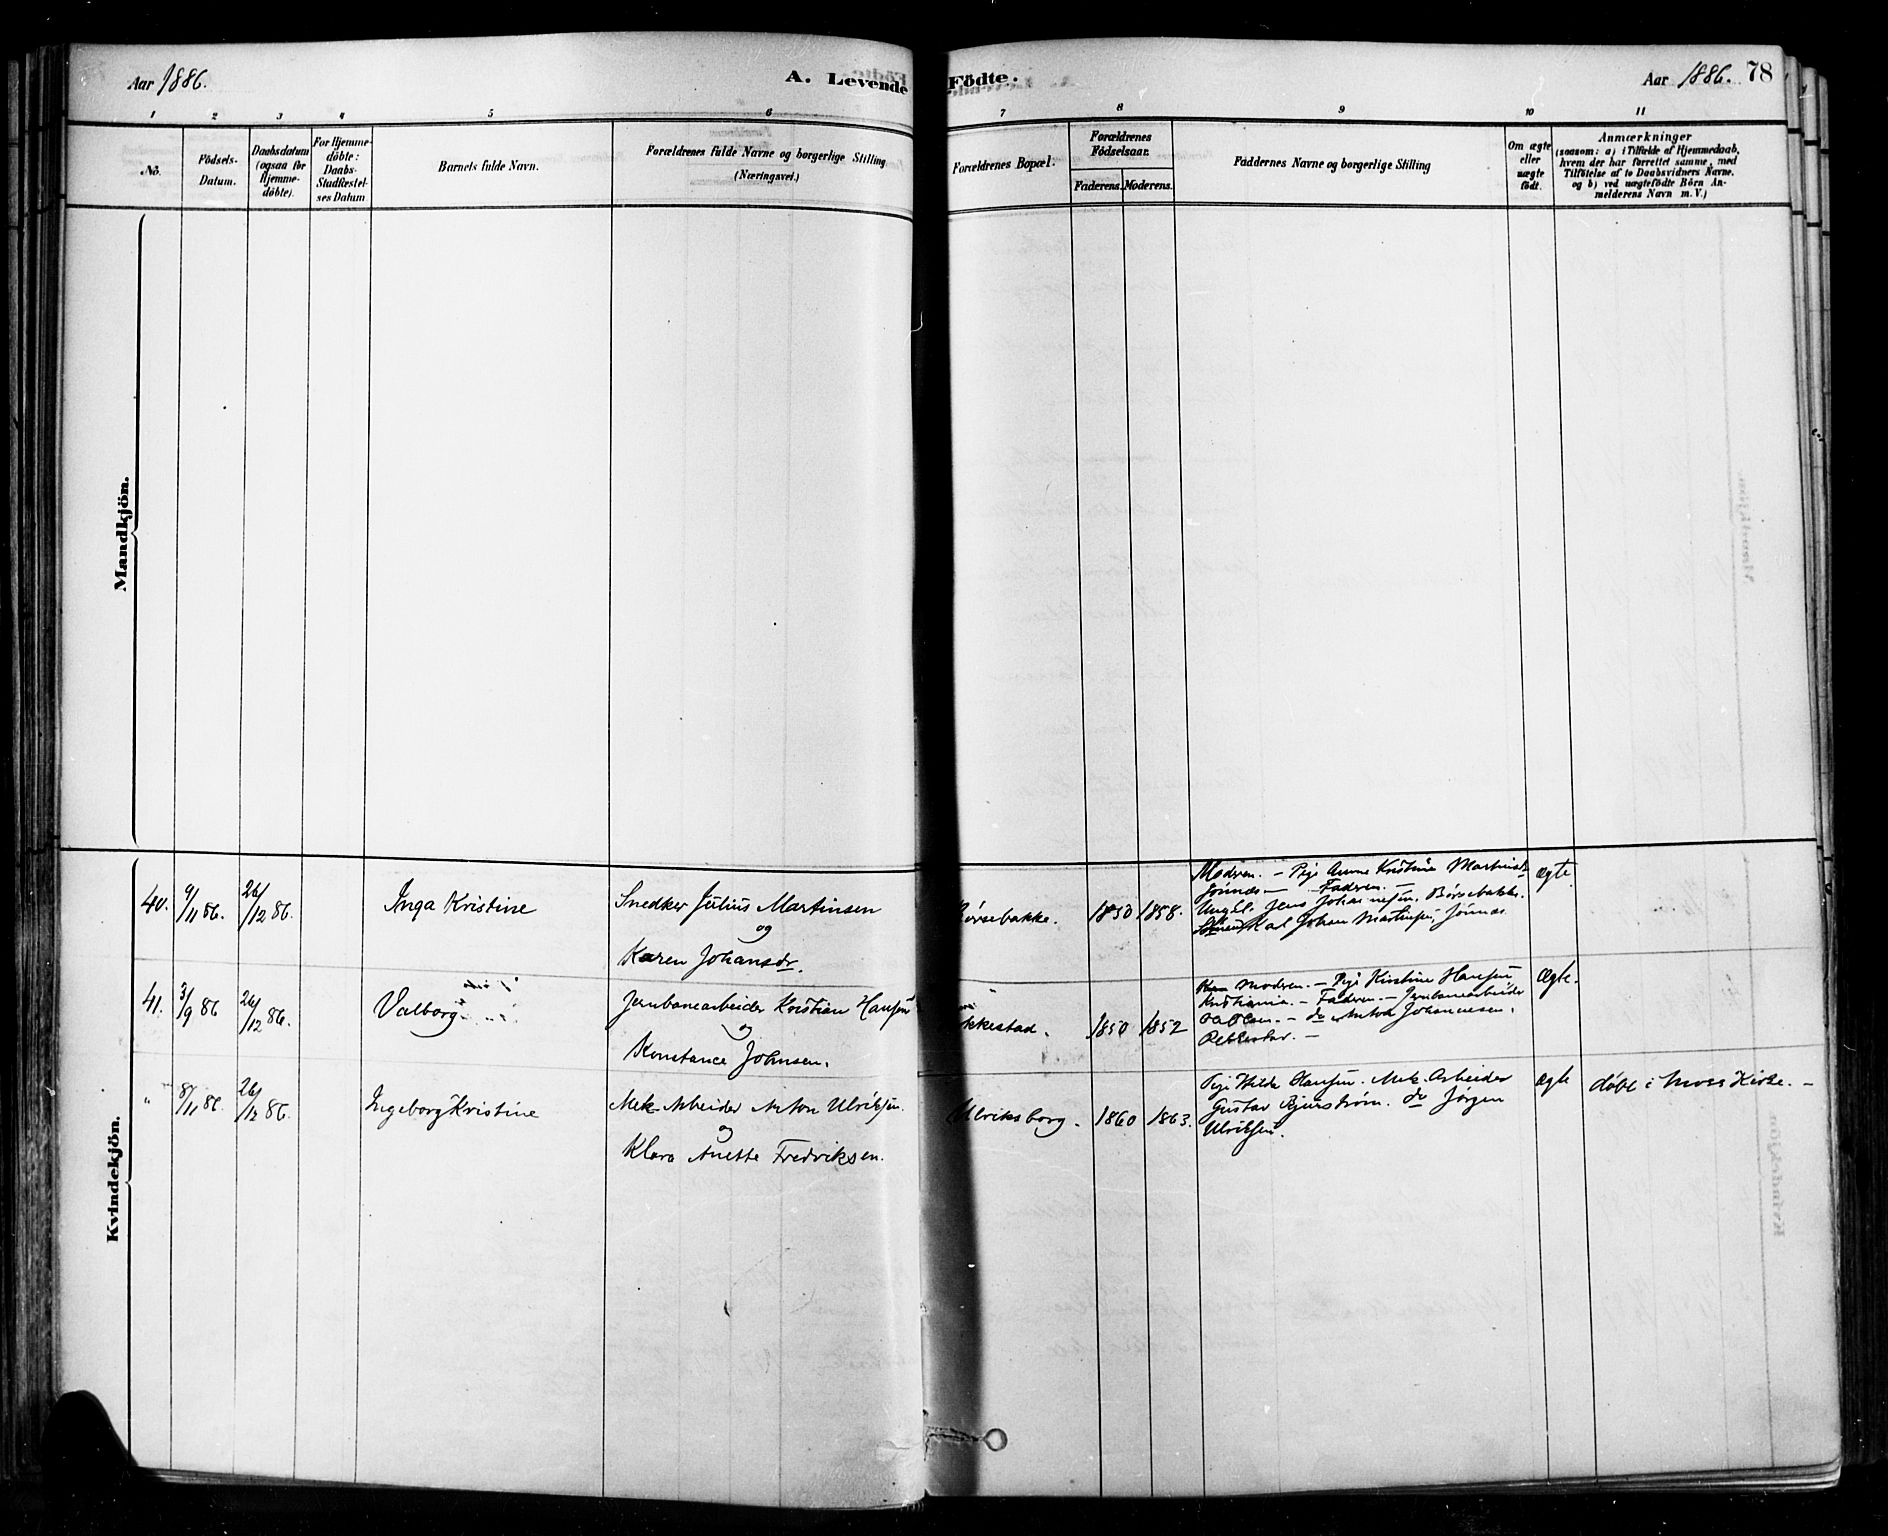 Aar 1886.
A. Levende Födte.
Aar 1886. 78
1 2 3 4 5 6 7 8 9 10 11
No.
Födsels-
Datum.
Daabsdatum
(ogsaa for
Hjemme-
döbte).
For Hjemme-
döbte:
Daabs-
Stadfæstel-
ses Datum
Barnets fulde Navn.
Forældrenes fulde Navne og borgerlige Stilling
(Næringsvei.)
Forældrenes Bopæl.
Forældrenes
Födselsaar.
Faderens. Moderens.
Faddernes Navne og borgerlige Stilling
Om ægte
eller
uægte
födt.
Anmærkninger
(saasom: a) i Tilfælde af Hjemmedaab,
hvem der har forrettet samme, med
Tilföielse af to Daabsvidners Navne,
og b) ved uægtefödte Börn An-
melderens Navn m. V.)
Mandkjön.
Kvindekjön.
40. 9/11 86. 26/12 86. Inga Kristine
Snedker Julius Martinsen
og
Karen Johansdr.
Børsebakke. 1850 1858.
Modren. – Pige Anne Kristine
– Fadren. –
Ungk. Jens Johannesen. Børsebakke.
Karl Johan Martinsen,
ægte
41. 3/9 86 26/12 86. Valborg
Jernbanearbeider Kristian Hansen
og
Konstance Johnsen.
1850 1852
Modren. – Pige Kirstine Hansen
Kristiania. – Fadren. – Jernbanearbeider
Olsen. – do Johannesen.
Ægte.
" 8/11 86. 26/12 86. Ingeborg Kristine
Mek. Arbeider Anton Ulriksen.
og
Klara Anette Fredriksen.
Ulriksborg. 1860 1863.
Pige Hilda Hansen. Mek. Arbeider
Gustav Bjurstrøm. do Jørgen
Ulriksen.
Ægte
døbt i Moss Kirke. –